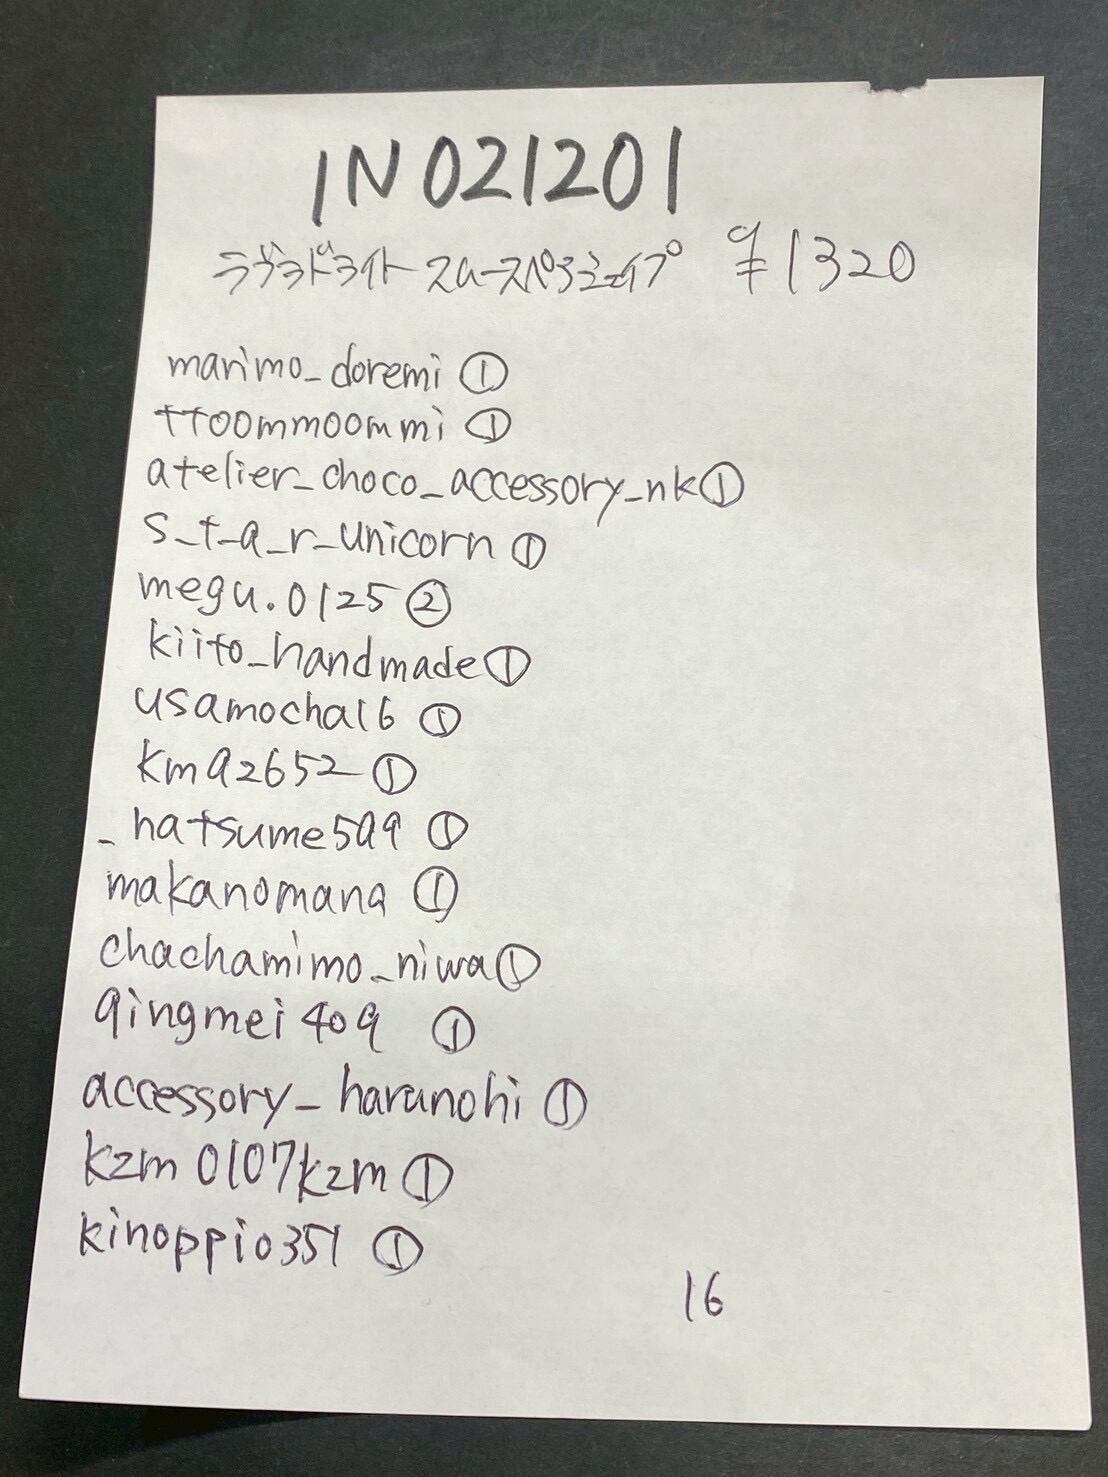 IN021201
ラヴラドライト スムースペアシェイプ ¥1320
marimo_doremi ①
ttoommoommi ①
atelier_choco_accessory_nk①
s_t_a_r_unicorn ①
megu.0125 ②
kiito_handmade①
usamocha16 ①
kma2652 ①
_hatsume509 ①
makanomana ①
chachamimo_niwa①
qingmei409 ①
accessory_harunohi ①
kzm0107kzm ①
kinoppio351 ①
16